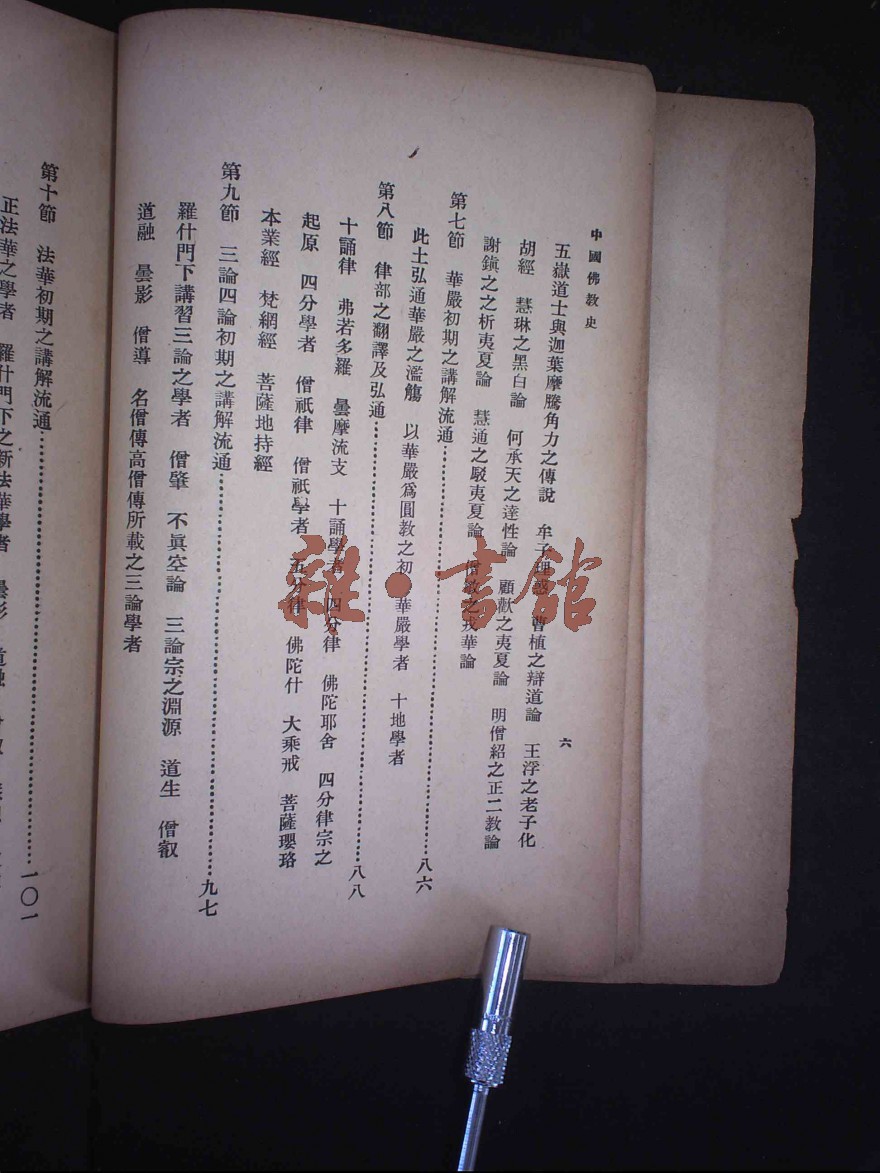 中國佛教史
六
五嶽道士與迦葉摩騰角力之傳說　牟子理惑　曹植之辯道論　王浮之老子化
胡經　慧琳之黑白論　何承天之達性論　顧歡之夷夏論　明僧紹之正二教論
謝鎮之之析夷夏論　慧通之駁夷夏論　僧敏之戎華論
第七節　華嚴初期之講解流通……八六
此土弘通華嚴之濫觴　以華嚴爲圓教之初　華嚴學者　十地學者
第八節　律部之翻譯及弘通……八八
十誦律　弗若多羅　曇摩流支　十誦學者　四分律　佛陀耶舍　四分律宗之
起原　四分學者　僧祇律　僧祇學者　五分律　佛陀什　大乘戒　菩薩瓔珞
本業經　梵網經　菩薩地持經
第九節　三論四論初期之講解流通……九七
羅什門下講習三論之學者　僧肇　不眞空論　三論宗之淵源　道生　僧叡
道融　曇影　僧導　名僧傳高僧傳所載之三論學者
第十節　法華初期之講解流通……一〇一
正法華之學者　羅什門下之新法華學者　曇影　道融
雜·書館